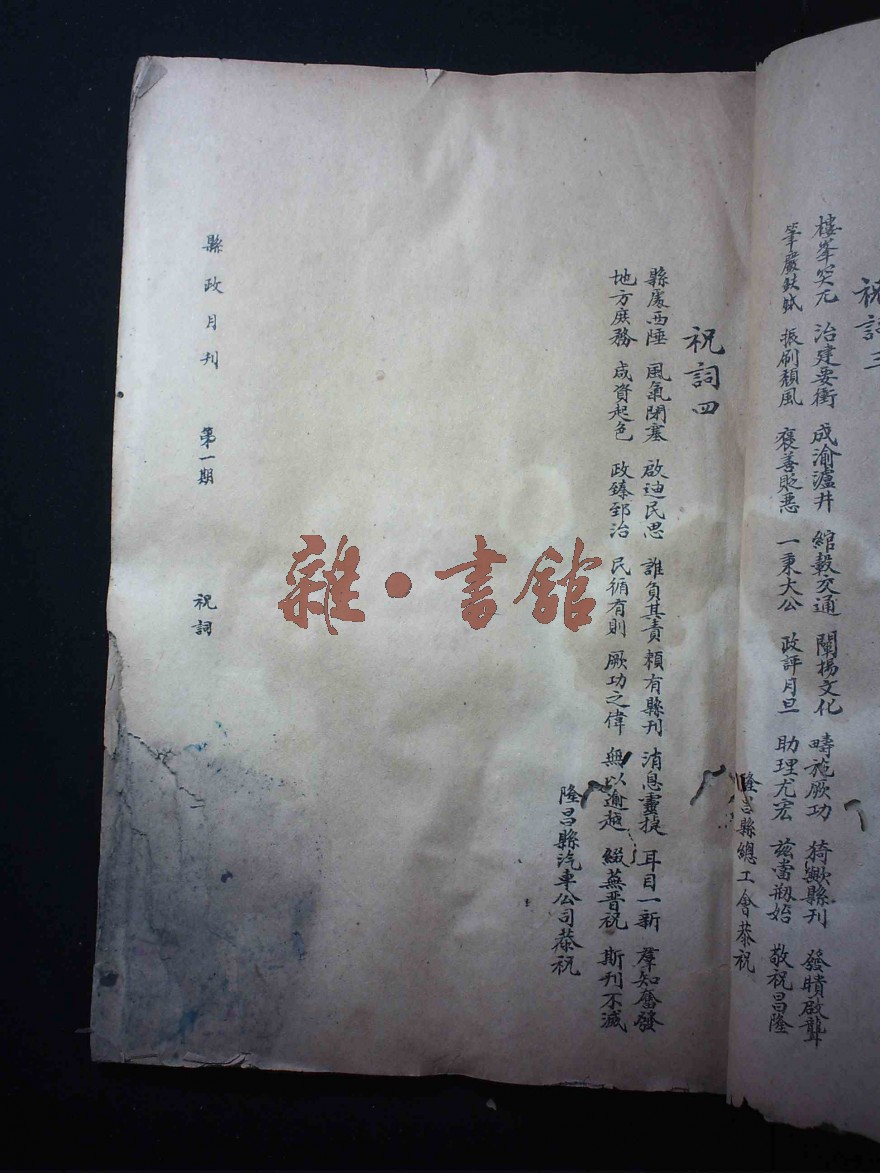 祝詞三
樓峯突兀　治建要衝　成渝瀘井　綰轂交通　闡揚文化　疇施厥功　猗歟縣刊　發瞶啟聾
筆嚴鈇鉞　振刷頹風　褒善貶惡　一秉大公　政評月旦　助理尤宏　茲當刱始　敬祝昌隆
隆昌縣總工會恭祝
祝詞四
縣處西陲　風氣閉塞　啟迪民思　誰負其責　賴有縣刊　消息靈捷　耳目一新　羣知奮發
地方庶務　咸資起色　政臻郅治　民循有則　厥功之偉　無以逾越　綴蕪晋祝　斯刊不滅
隆昌縣汽車公司恭祝
縣政月刊　第一期　祝詞
雜·書館